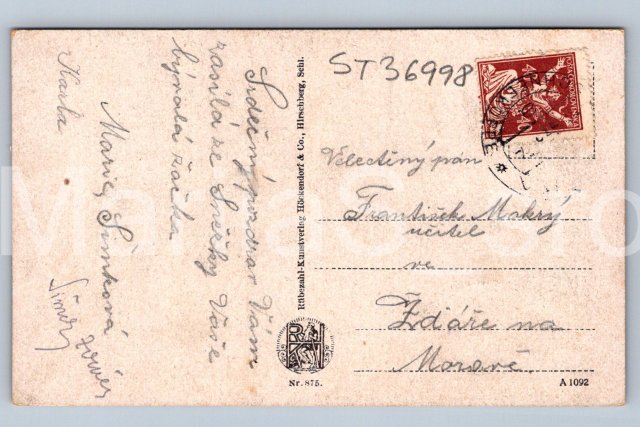 Srdečný pozdrav Vám
zasílá ze Sněžky Vaše
bývalá žačka
Marie Šimková
Karla
ST36998
Velectěný pan
František Mokrý
učitel
ve
Žďáře na
Moravě
Rübezahl-Kunstverlag Höckendorf & Co., Hirschberg, Schl.
Nr. 875.
A 1092